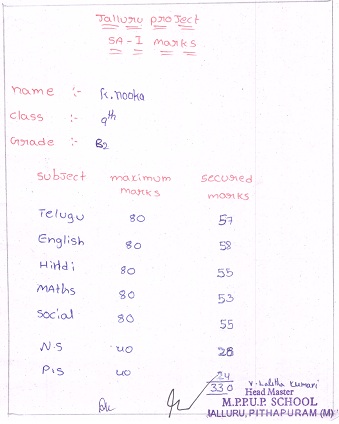 Jalluru project
SA-I marks
name :- K.nooka
class :- 9th
Grade :- B2
subject maximum marks secured marks
Telugu 80 57
English 80 58
Hindi 80 55
MAths 80 53
social 80 55
N.S 40 28
P.S 40 24
330
V. Lalitha Kumari
Head Master
M.P.P.U.P. SCHOOL
JALLURU, PITHAPURAM (M)